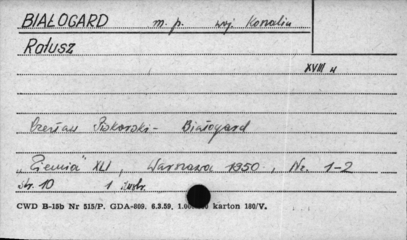 BIAŁOGARD m. p. woj Koszalin
Ratusz
XVIII w
Czesław Piskorski - Białogard
„Ziemia" XLI, Warszawa 1950, Nr. 1-2
str. 10 1 ilustr.
CWD B-15b Nr 515/P. GDA-809. 6.3.59, 1.00 karton 180/V.